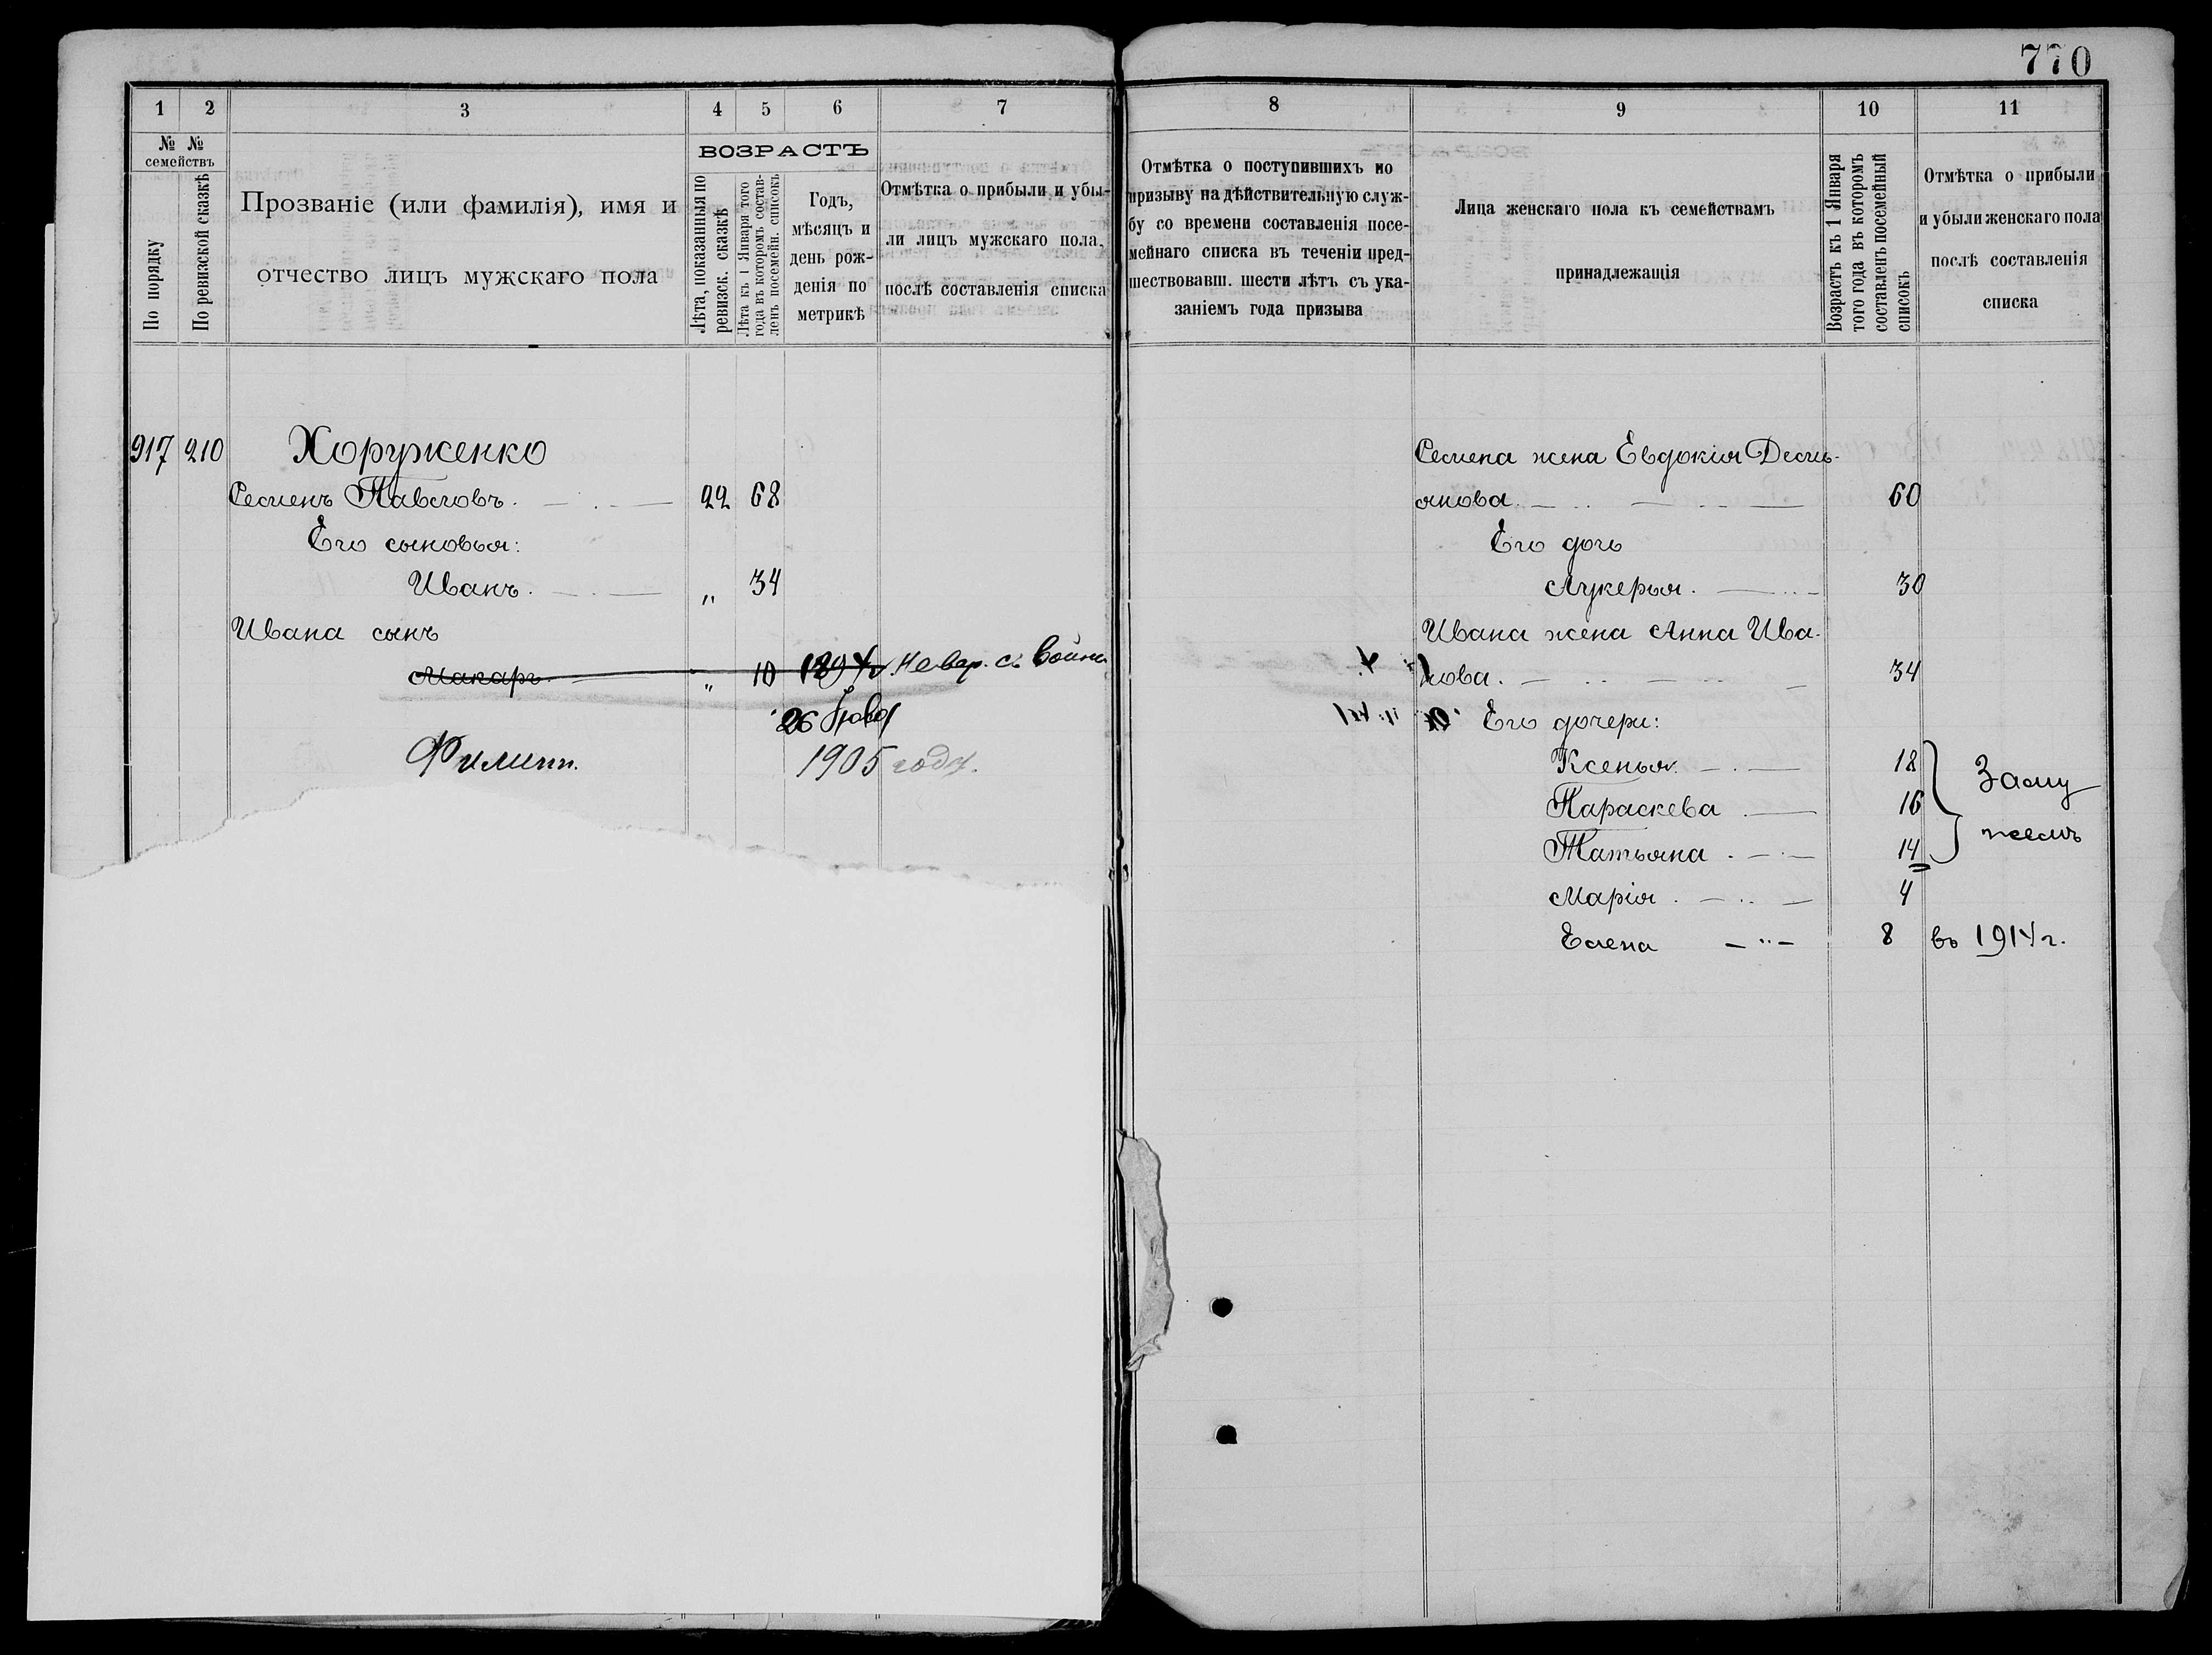 770
1 2 3 4 5 6 7
№ № семействъ
По порядку
По ревизской сказкѣ
Прозваніе (или фамилія), имя и
отчество лицъ мужскаго пола
ВОЗРАСТЪ
Лѣта, показанныя по
ревизск. сказкѣ
Лѣта къ 1 Января того
года въ которомъ состав-
ленъ посемейн. списокъ
Годъ,
мѣсяцъ и
день рож-
денія по
метрикѣ
Отмѣтка о прибыли и убы-
ли лицъ мужскаго пола,
послѣ составленія списка
917 210 Хоруженко
Семенъ Павловъ. 22 68
Его сыновья:
Иванъ. " 34
Ивана сынъ
Макаръ " 10 1894 Не вер. съ войны
26
Филипп. 1905 года.
8 9 10 11
Отмѣтка о поступившихъ по
призыву на дѣйствительную служ-
бу со времени составленія посе-
мейнаго списка въ теченіи пред-
шествовавш. шести лѣтъ съ ука-
заніемъ года призыва
Лица женскаго пола къ семействамъ
принадлежащія
Возрастъ къ 1 Января
того года въ которомъ
составленъ посемейный
списокъ
Отмѣтка о прибыли
и убыли женскаго пола
послѣ составленія
списка
Семена жена Евдокія Демь-
янова. 60
Его дочь
Лукерья. 30
Ивана жена Анна Ива-
нова. 34
Его дочери:
Ксенья. 18
Параскева 16
Татьяна. 14
Заму
жемъ
Марія. 4
Елена 8 въ 1914 г.